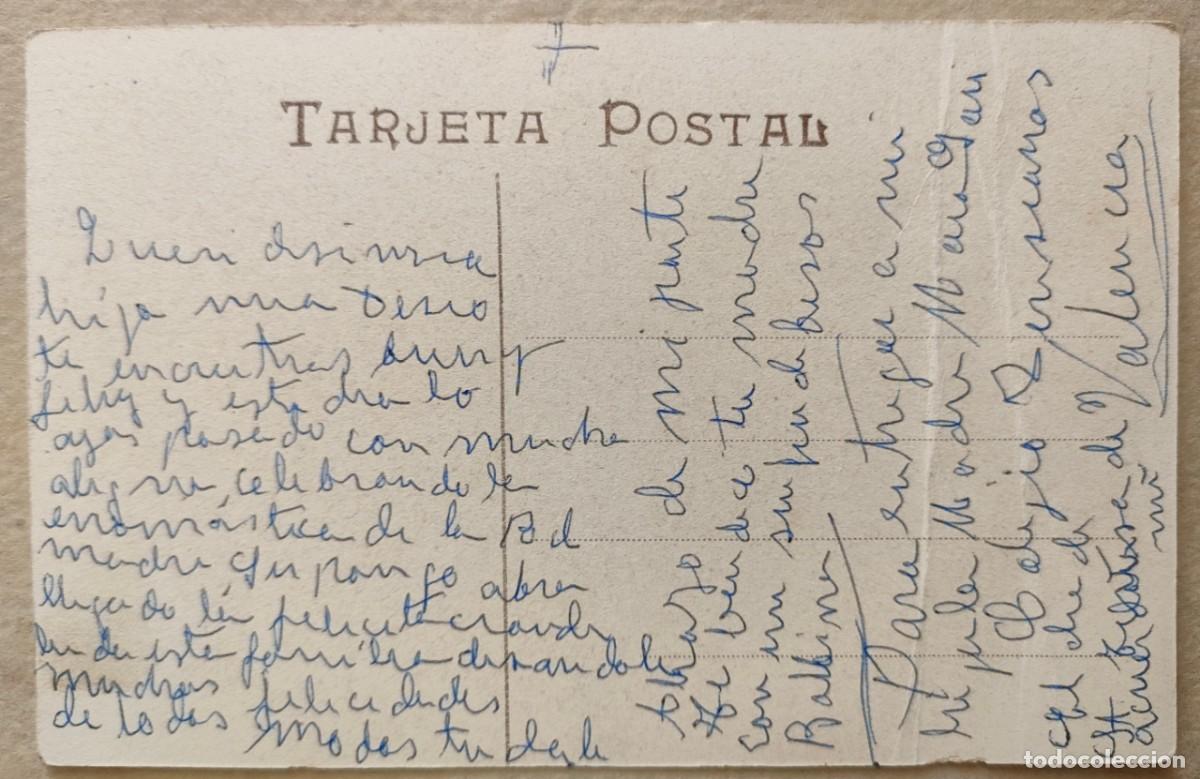 TARJETA POSTAL
Queridisima
hija mia Deseo
te encuentras muy
feliz y este dia lo
ayas pasado con mucha
alegria, celebrando la
enomástica de la Bd
madre Supongo abra
llegado la felicitacion de
de esta familia deseandole
muchas felicidades
de todos modos tu dale
abrazo de mi parte
Te bendice tu madre
con un sinfin de besos
Balbina
Para entregar a mi
hija la Madre Mara Gau
Colejio Rensianas
de Valencia
todocoleccion